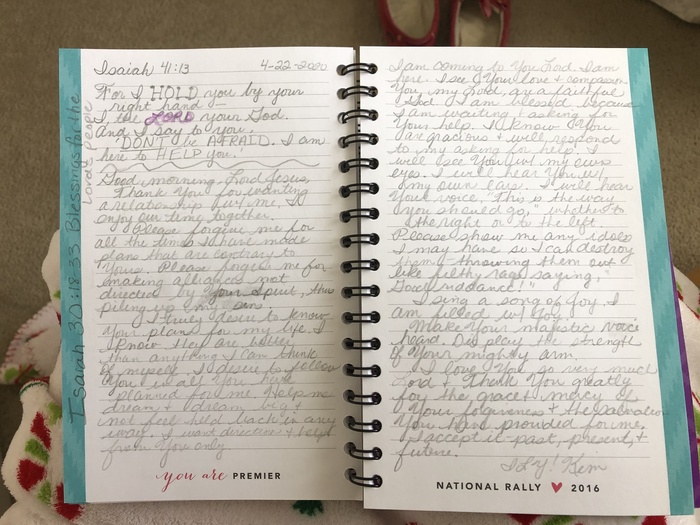 Isaiah 41:13 4-22-2020
For I HOLD you by your
right hand —
I the LORD your God.
And I say to you,
"DON'T be AFRAID. I am
here to HELP you!
Good morning, Lord Jesus,
Thank You for wanting
a relationship w/ me. I
enjoy our time together.
Please forgive me for
all the times I have made
plans that are contrary to
Yours. Please forgive me for
making alliances not
directed by Your Spirit, thus
piling up my sins.
I truly desire to know
Your plans for my life. I
know they are better
than anything I can think
of myself. I desire to follow
You in all You have
planned for me. Help me
dream & dream big &
not feel held back in any
way. I want direction & help
from You only.
Isaiah 30:18-33 Blessings for the
Lord's People
you are PREMIER
I am coming to You Lord. I am
here. I see Your love & compassion
You, my Lord, are a faithful
God. I am blessed because
I am waiting & asking for
Your help. I know You
are gracious & will respond
to my asking for help. I
will see You w/ my own
eyes. I will hear You w/
my own ears. I will hear
Your voice, "This is the way
you should go," whether to
the right or to the left.
Please show me any idols
I may have so I can destroy
them & throwing them out
like filthy rags saying,
"Good riddance!"
I sing a song of joy. I
am filled w/ You.
Make Your majestic voice
heard. Display the strength
of Your mighty arm.
I love You so very much
Lord & Thank You greatly
for the grace & mercy of
Your forgiveness & the Salvation
You have provided for me.
I accept it - past, present, &
future.
ILY! Kim
NATIONAL RALLY 2016